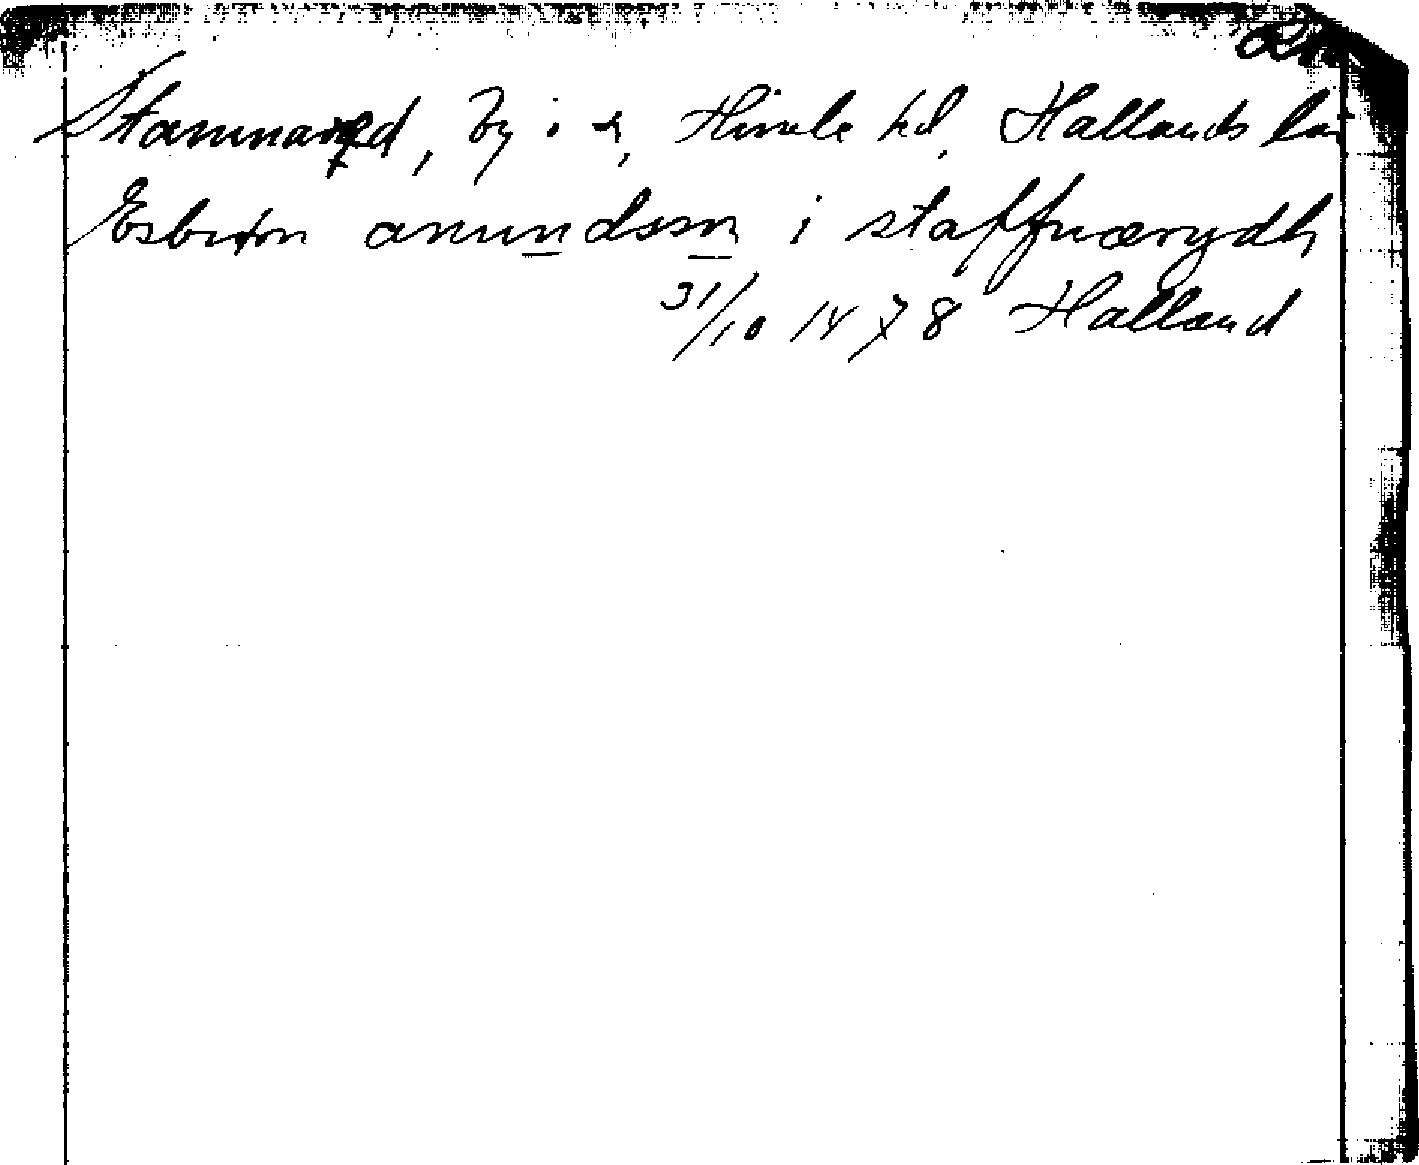 Stamnared, by i d, Himle hd, Hallands län
Esbiørn anundssn i staffnærydh
31/10 1478 Halland